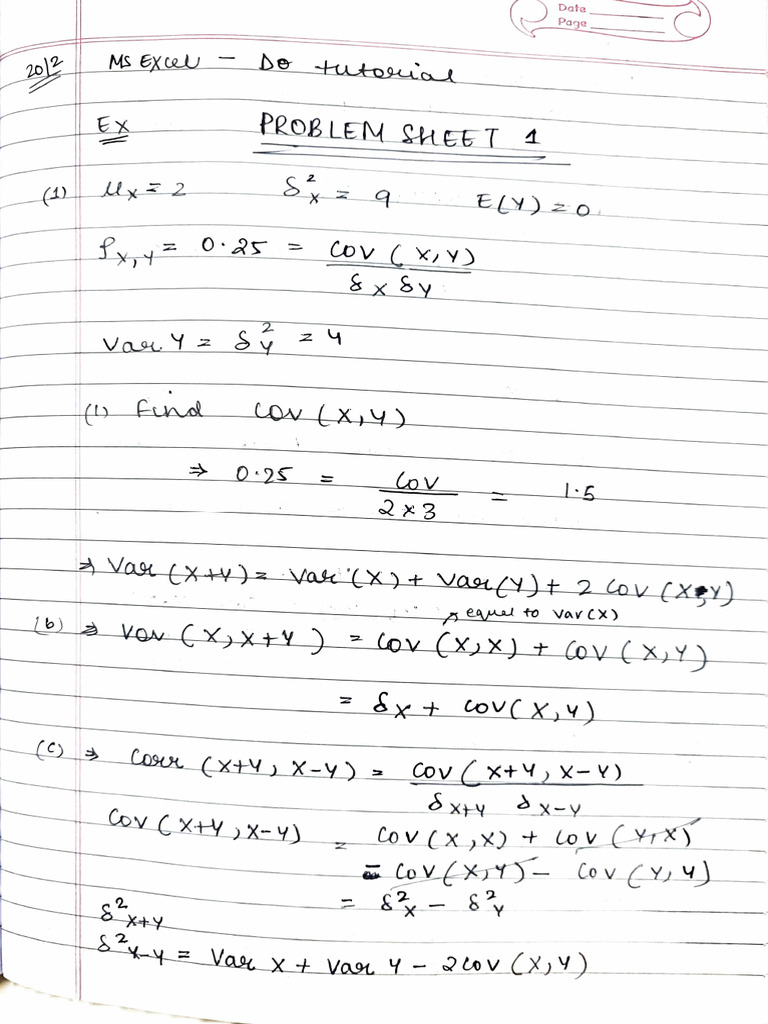 Date
Page
20/2 MS Excel - Do tutorial
Ex PROBLEM SHEET 1
(1) μx = 2 δ²x = 9 E(Y) = 0
ρx,y = 0.25 = COV (X,Y) / δx δy
Var Y = δ²y = 4
(1) Find COV (X,Y)
⇒ 0.25 = COV / 2 x 3 = 1.5
⇒ Var (X+Y) = Var (X) + Var(Y) + 2 COV (X,Y)
↗ equal to var(X)
(b) ⇒ Vov (X, X+Y) = COV (X,X) + COV (X,Y)
= δx + COV(X,Y)
(c) ⇒ Corr (X+Y, X-Y) = COV (X+Y, X-Y) / δx+y δx-y
COV (X+Y, X-Y) = COV (X,X) + COV (Y,X)
- COV (X,Y) - COV (Y,Y)
= δ²x - δ²y
δ²x+y
δ²x-y = Var X + Var Y - 2COV (X,Y)